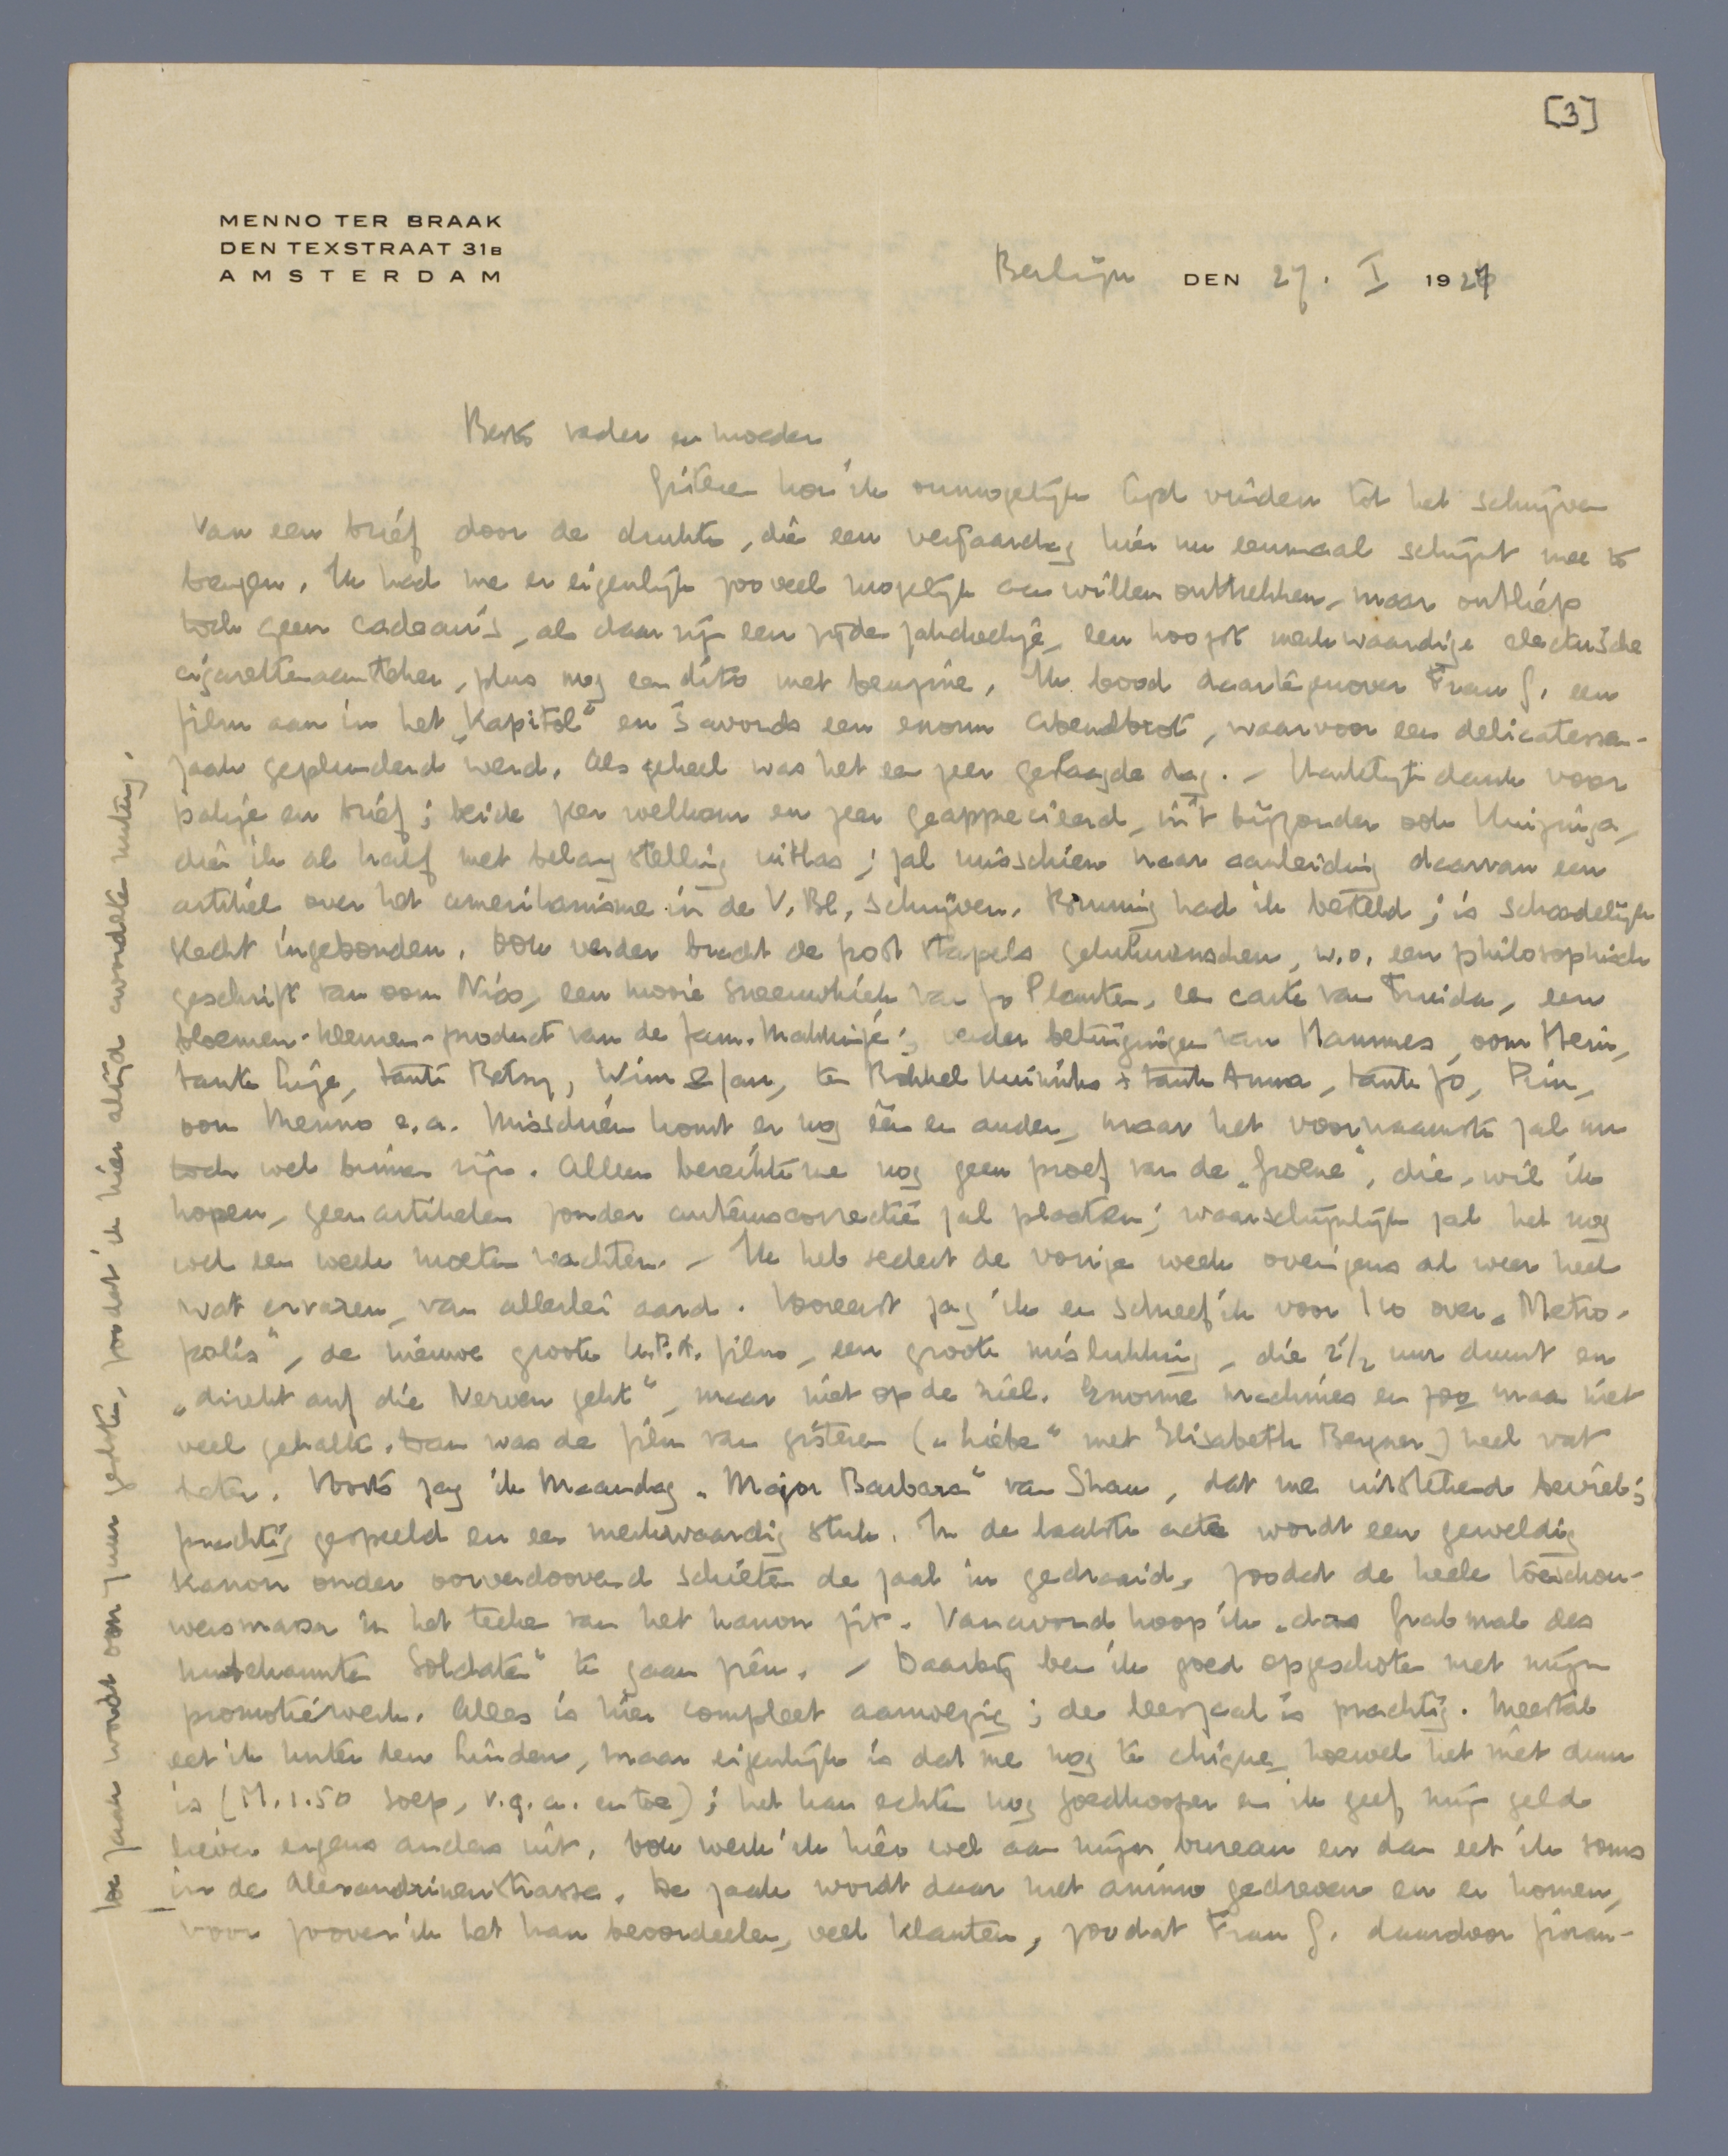 [3]
MENNO TER BRAAK
DEN TEXSTRAAT 31B
AMSTERDAM
Berlijn DEN 27. I 1927
Beste vader en moeder
Gisteren kon ik onmogelijk tijd vinden tot het schrijven
van een brief door de drukte, die een verjaardag hier nu eenmaal schijnt mee te
brengen. Ik had me er eigenlijk zooveel mogelijk aan willen onttrekken, maar ontliep
toch geen cadeau's, als daar zijn een zijden zakdoekje, een hoogst merkwaardige electrische
cigarettenaansteker, plus nog een dito met benzine. Ik bood daartegenover Frau G. een
film aan in het „Kapitol" en 's avonds een enorm Abendbrot, waarvoor een delicatessen-
zaak geplunderd werd. Als geheel was het een zeer geslaagde dag. – Hartelijk dank voor
pakje en brief; beide zeer welkom en zeer geapprecieerd, in 't bijzonder ook Huizinga,
die ik al half met belangstelling uitlas; zal misschien naar aanleiding daarvan een
artikel over het amerikanisme in de V. Bl. schrijven. Bruning had ik besteld; is schandelijk
slecht ingebonden. Ook verder bracht de post stapels gelukwenschen, w.o. een philosophisch
geschrift van oom Nico, een mooie sneeuwkiek van Jo Planten, een carte van Truida, een
bloemen-kleuren-product van de fam. Makkinje; verder betuigingen van Hannes, oom Hein,
tante Lize, tante Betsy, Wim & Jan, ten Bokkel Huinink + tante Anna, tante Jo, Puin,
oom Menno e.a. Misschien komt er nog één en ander, maar het voornaamste zal nu
toch wel binnen zijn. Alleen bereikte me nog geen proef van de „Groene", die, wil ik
hopen, geen artikelen zonder auteurscorrectie zal plaatsen; waarschijnlijk zal het nog
wel een week moeten wachten. – Ik heb sedert de vorige week overigens al weer heel
wat ervaren, van allerlei aard. Vooreerst zag ik en schreef ik voor I 10 over „Metro-
polis", de nieuwe groote U.F.A. film, een groote mislukking, die 2 1/2 uur duurt en
„direkt auf die Nerven geht", maar niet op de ziel. Enorme machines en zoo maar niet
veel gehalte. Dan was de film van gisteren („Liebe" met Elisabeth Bergner) heel wat
beter. Voorts zag ik Maandag „Major Barbara" van Shaw, dat me uitstekend beviel;
prachtig gespeeld en een merkwaardig stuk. In de laatste acte wordt een geweldig
kanon onder oorverdoovend schieten de zaal in gedraaid, zoodat de heele toeschou-
wersmassa in het teeken van het kanon zit. Vanavond hoop ik „das Grabmal des
unbekannten Soldaten" te gaan zien. – Daarbij ben ik goed opgeschoten met mijn
promotiewerk. Alles is hier compleet aanwezig; de leeszaal is prachtig. Meestal
eet ik Unter den Linden, maar eigenlijk is dat me nog te chique, hoewel het niet duur
is (M. 1.50 soep, v.g.a. en toe); het kan echter nog goedkooper en ik geef mijn geld
liever ergens anders uit. Ook werk ik hier wel aan mijn bureau en dan eet ik soms
in de Alexandrinenstrasse. De zaak wordt daar met animo gedreven en er komen,
voor zoover ik het kan beoordeelen, veel klanten, zoodat Frau G. daardoor finan-
De zaak wordt om 7 uur gesloten, zoodat ik hier altijd avondeten nuttig.